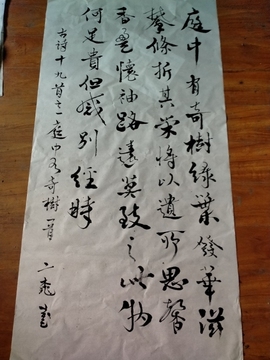 庭中有奇樹綠葉發華滋
攀條折其榮將以遺所思馨
香盈懷袖路遠莫致之此物
何足貴但感別經時
古詩十九首之一庭中有奇樹一首